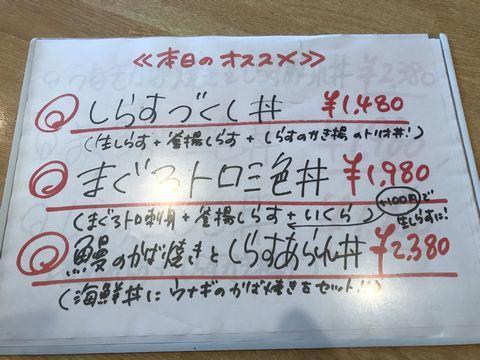 ≪本日のオススメ≫
しらすづくし丼 ¥1,480
(生しらす + 釜揚しらす + しらすのかき揚のトリオ丼!)
まぐろトロ三色丼 ¥1,980
(まぐろトロ刺身 + 釜揚しらす + いくら
+100円で
生しらすに!
鰻のかば焼きとしらすあられ丼 ¥2,380
(海鮮丼にウナギのかば焼きをセット!!)